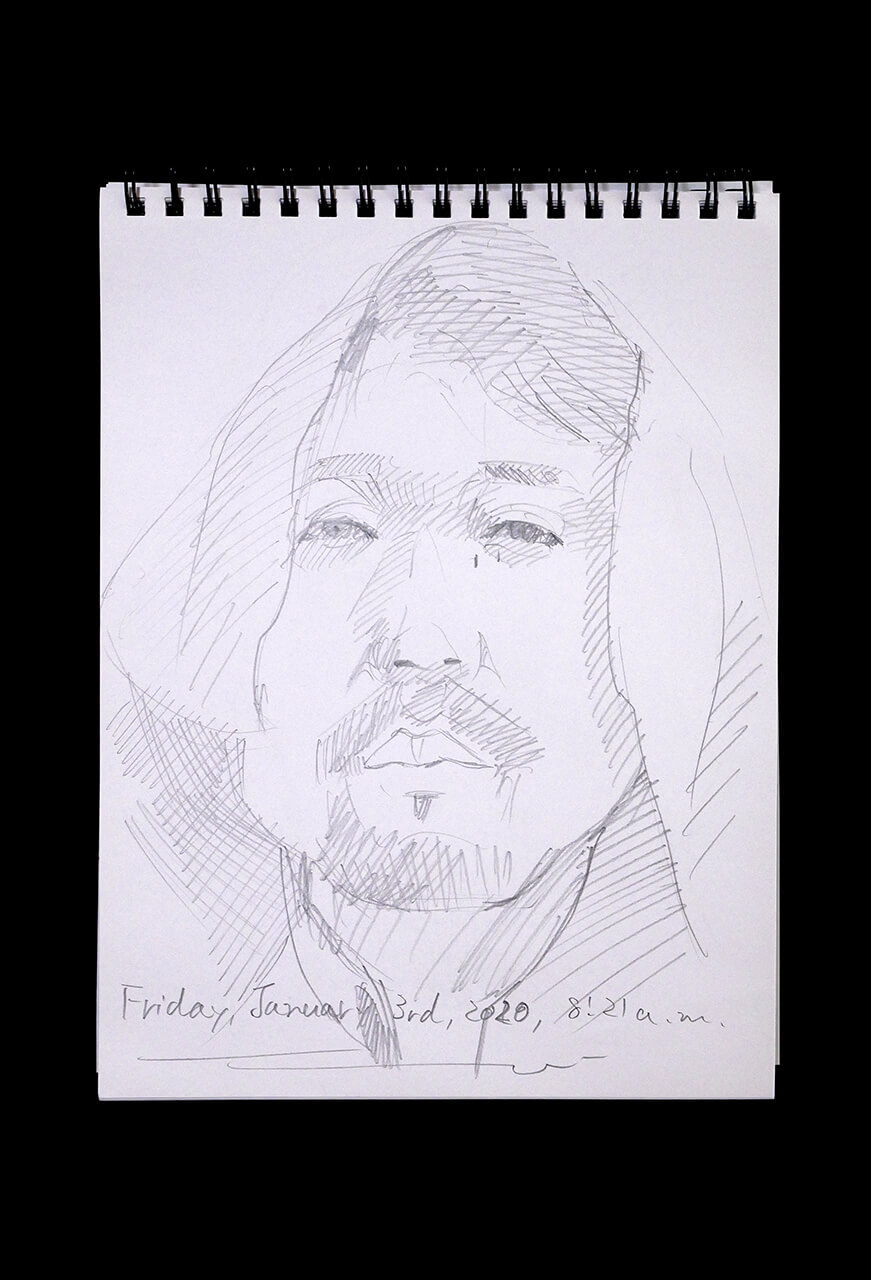 Friday, January 3rd, 2020, 8:21 a.m.